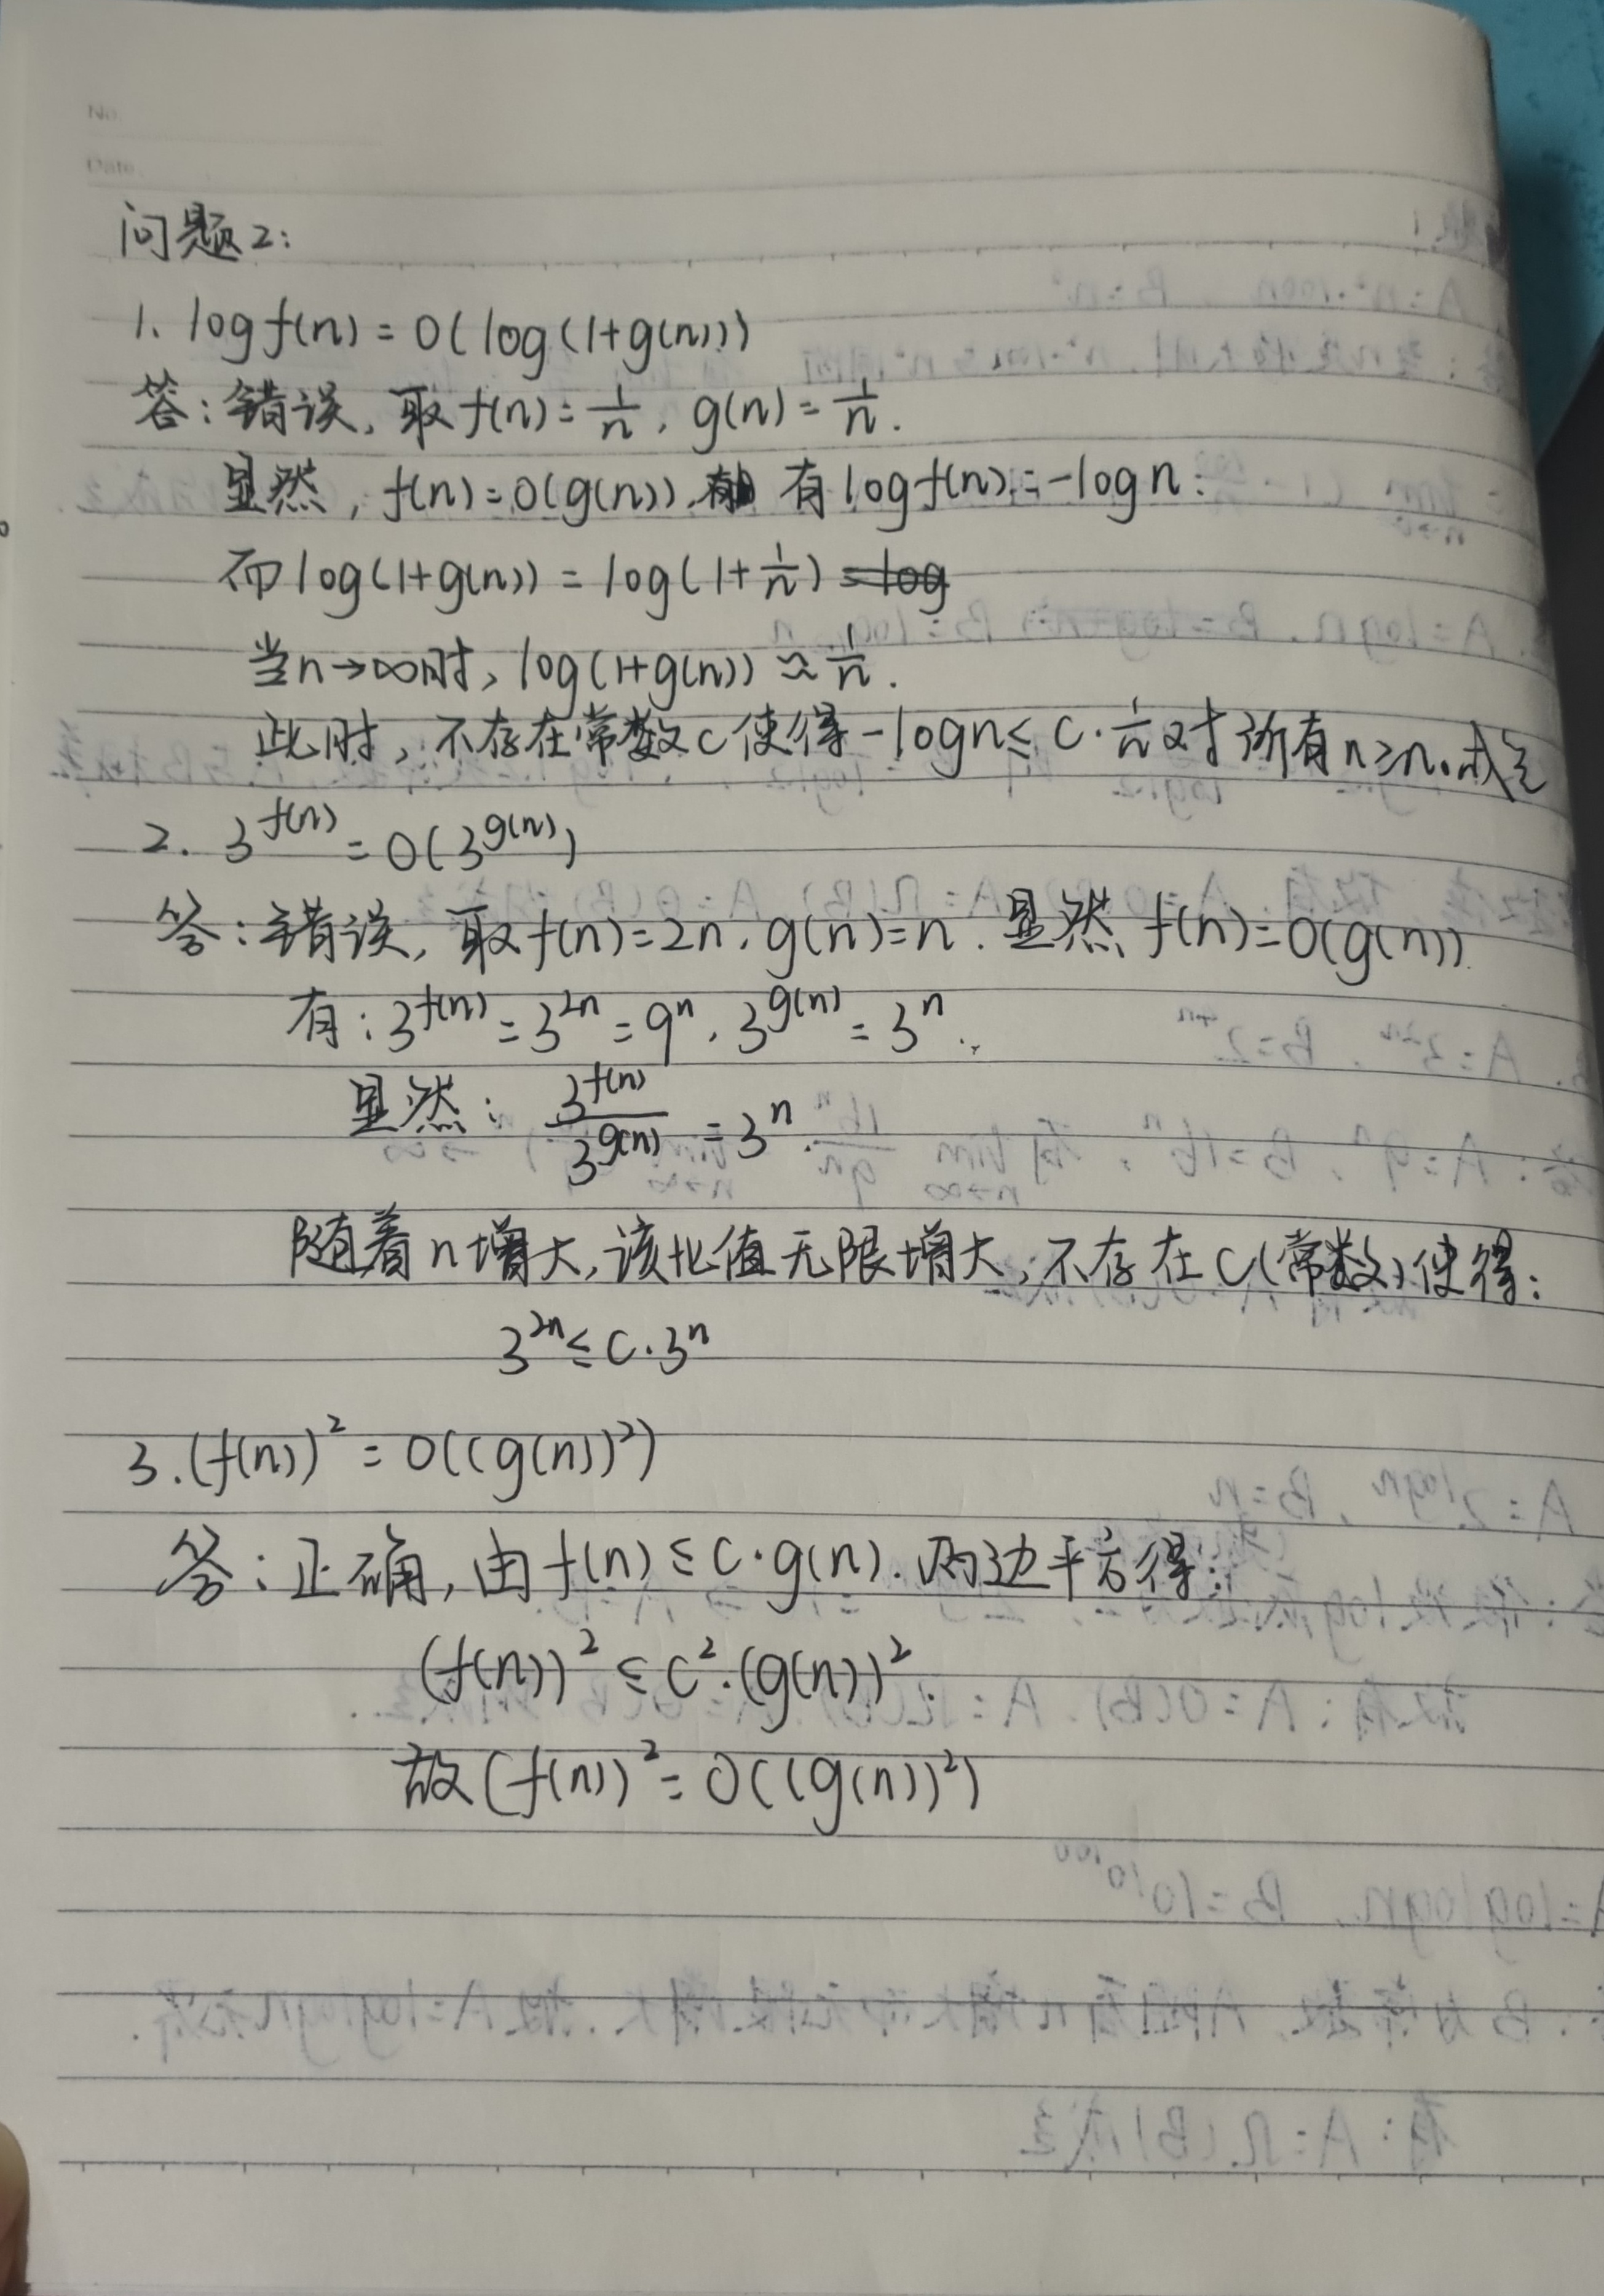 No.
Date.
问题2:
1. log f(n) = O( log(1+g(n)))
答: 错误, 取 f(n) = 1/n, g(n) = 1/n.
显然, f(n)=O(g(n)). 有 log f(n) = -log n.
而 log(1+g(n)) = log(1+1/n) = log
当 n→∞时, log(1+g(n)) ≈ 1/n.
此时, 不存在常数 c 使得 -log n ≤ c·1/n 对所有 n≥n₀成立
2. 3^f(n) = O(3^g(n))
答: 错误, 取 f(n)=2n, g(n)=n. 显然 f(n)=O(g(n)).
有: 3^f(n) = 3^2n = 9^n, 3^g(n) = 3^n.
显然: 3^f(n) / 3^g(n) = 3^n.
随着 n 增大, 该比值无限增大, 不存在 C(常数) 使得:
3^2n ≤ C·3^n
3. (f(n))² = O((g(n))²)
答: 正确, 由 f(n) ≤ C·g(n). 两边平方得:
(f(n))² ≤ C²·(g(n))².
故 (f(n))² = O((g(n))²)